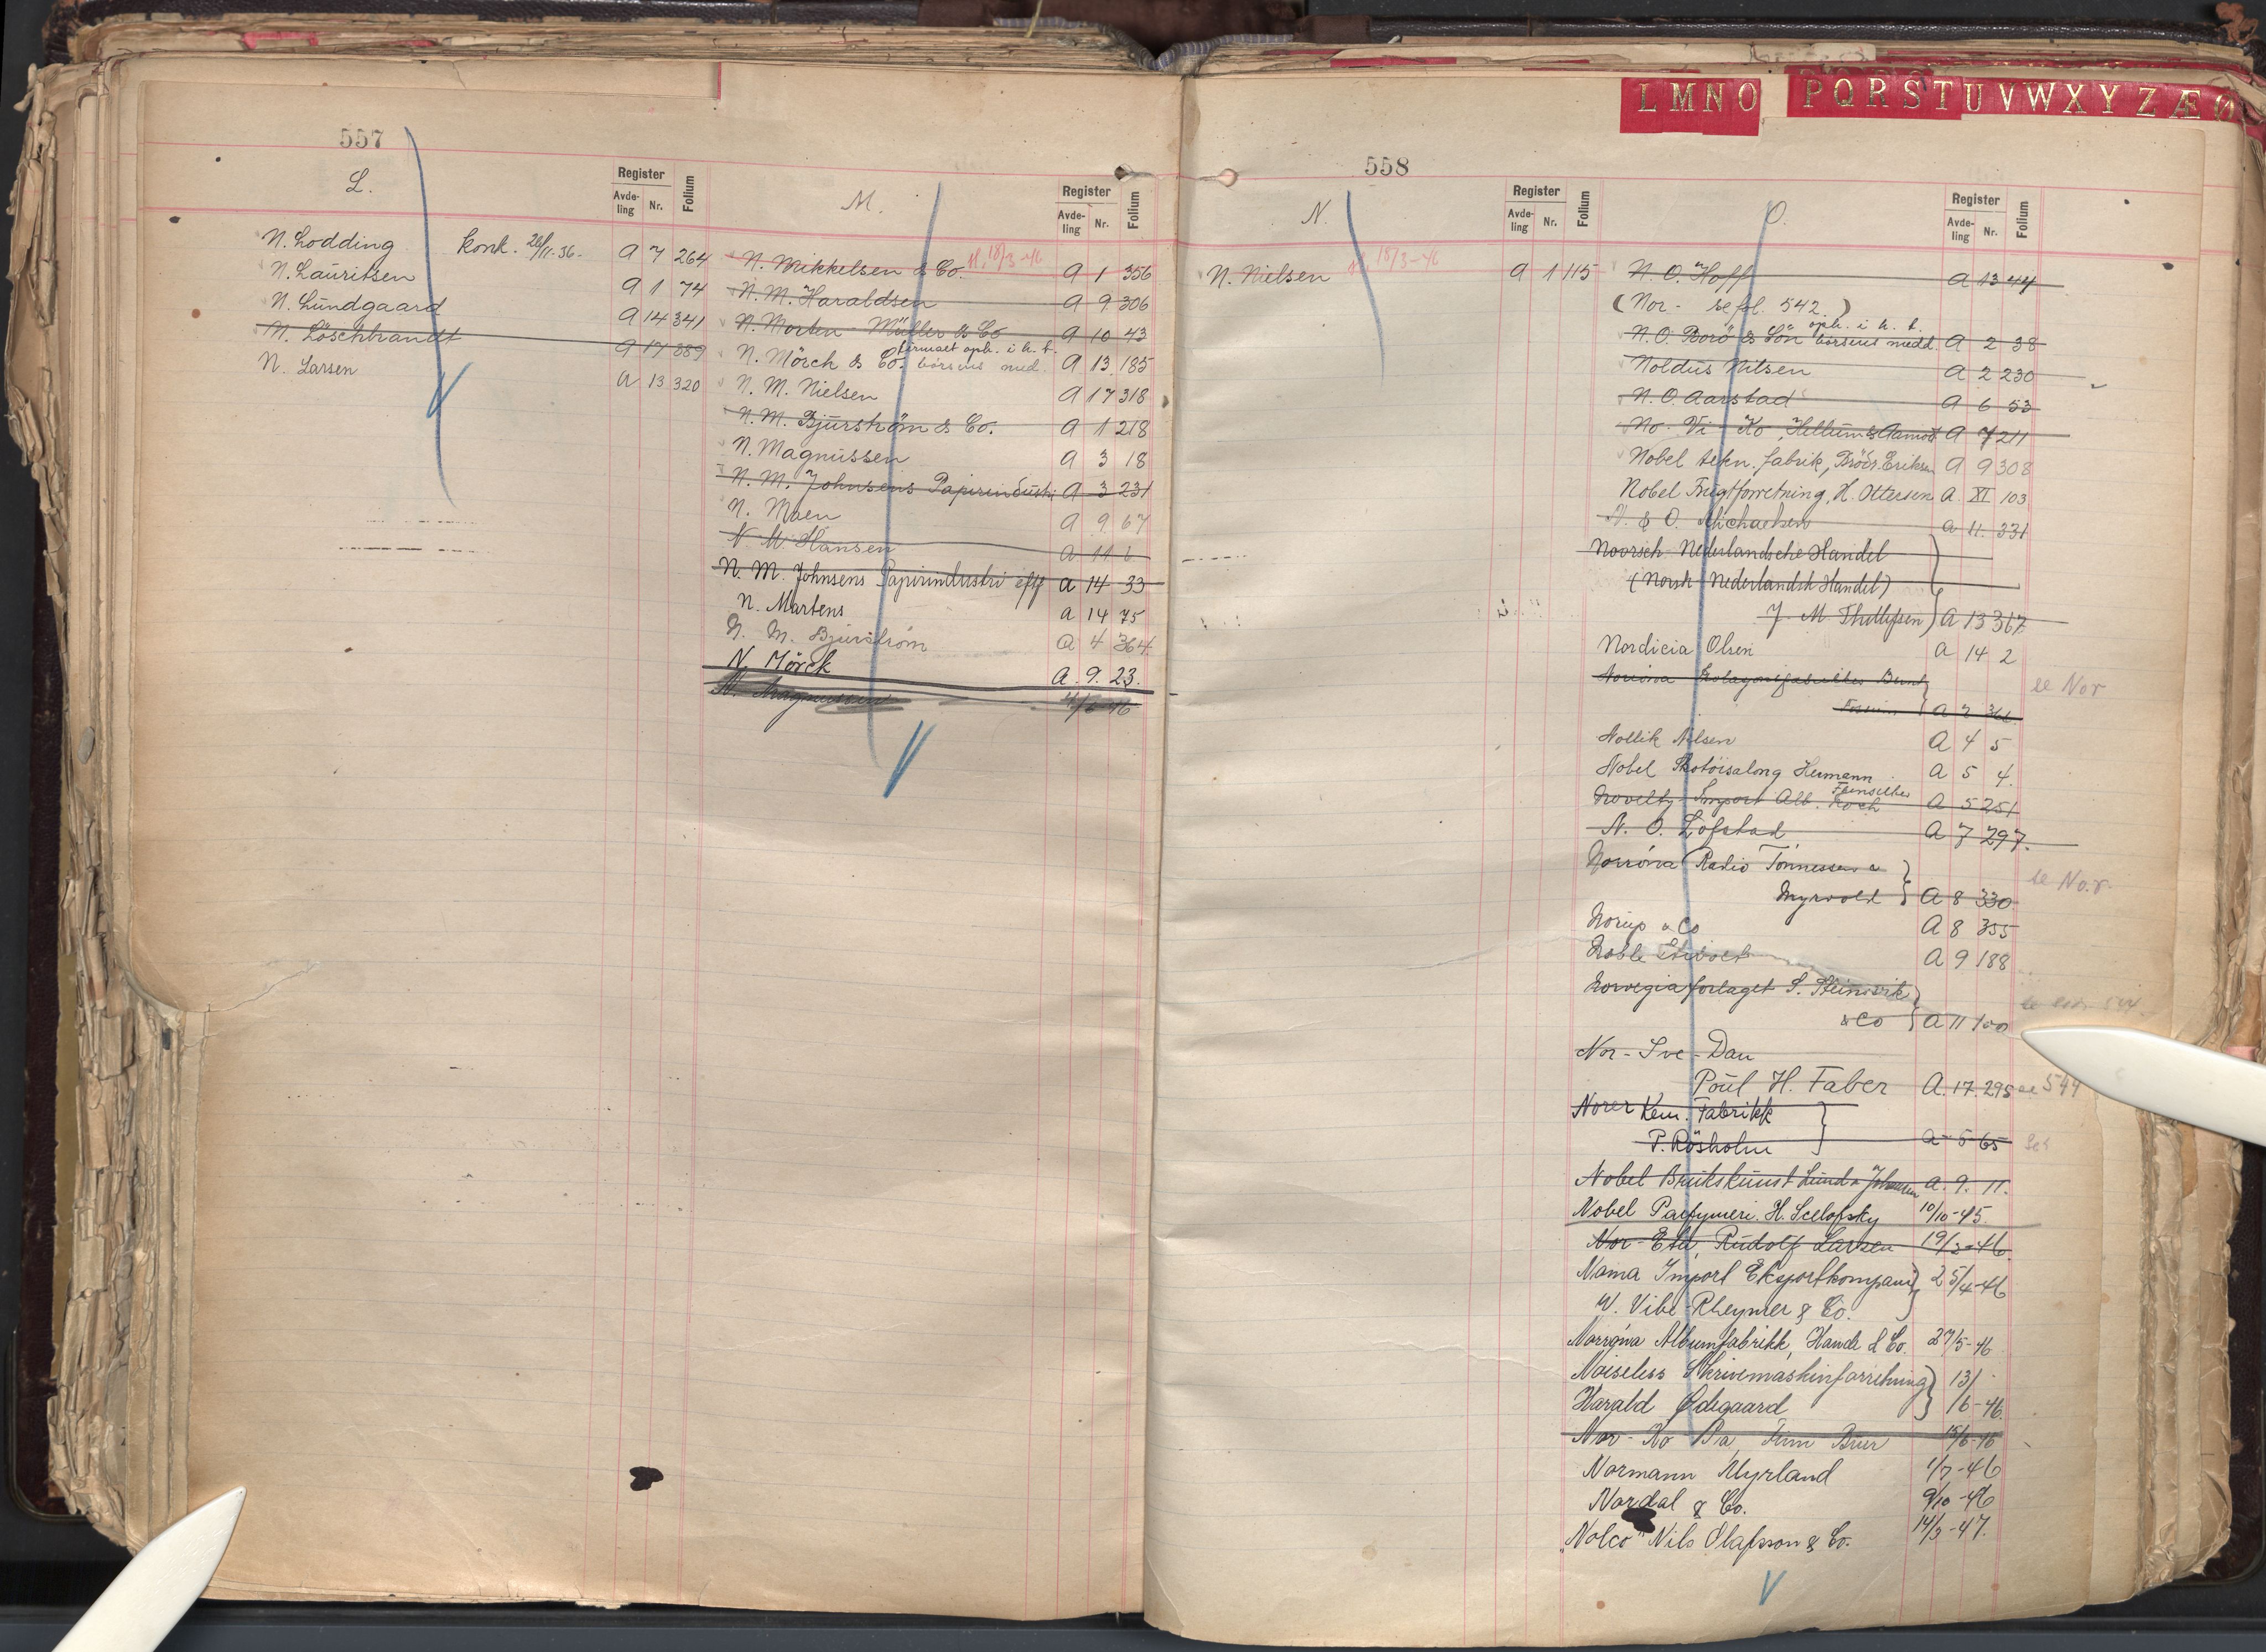 557
L.
Register
Avde-
ling
Nr.
Folium
N. Lodding konk. 26/11-36. A 7 264
N. Lauritsen A 1 74
N. Lundgaard A 14 341
N. Löschbrandt A 17 389
N. Larsen A 13 320
M.
Register
Avde-
ling
Nr.
Folium
N. Mikkelsen & Co. 18/3-46 A 1 356
N. M. Haraldsen A 9 306
N. Morten Müller & Co A 10 43
firmaet oph. i h. t.
N. Mörch & Co. börsens med. A 13 185
N. M. Nielsen A 17 318
N. M. Bjurström & Co. A 1 218
N. Magnussen A 3 18
N. M. Johnsens Papirindustri A 3 231
N. Moen A 9 67
N. M. Hansen A 11 6
N. M. Johnsens Papirindustri eftf A 14 33
N. Martens A 14 75
N. M. Bjurström A 4 364
N. Mörck A. 9. 23.
N. Magnussen 4/6-46
LMNO PQRSTUVWXYZÆØ
558
N.
Register
Avde-
ling
Nr.
Folium
N. Nielsen 18/3-46 A 1 115
O.
Register
Avde-
ling
Nr.
Folium
N. O. Hoff A 13 44
(Nor - se fol. 542.)
oph. i h. t.
N. O. Borö & Sön börsens medd. A 2 38
Noldus Nilsen A 2 230
N. O. Aarstad A 6 53
No-Vi-Ko, Hellum & Aamot A 7 211
Nobel tekn. fabrik, Brödr. Eriksen A 9 308
Nobel Frugtforretning, H. Ottersen A XI 103
N. & O. Michaelsen A 11. 331
Noorsch-Nederlandsche Handel
(Norsk Nederlandsk Handel)
J. M. Thellefsen) A 13 367
Nordicia Olsen A 14 2
Norröna Bunt se Nor
A 2 366.
Nollik Nilsen A 4 5
Nobel Skotöisalong Hermann A 5 4.
Novelty Import Alb. Koch A 5 251
N. O. Lofstad A 7 297.
Norröna Radio Tönnessen &
Myrvold A 8 330 se Nor.
Norup & Co A 8 355
Noble A 9 188
Norvegiaforlaget S. Steinsvik
& Co A 11 100
Nor-Sve-Dan
Poul H. Faber A. 17. 295 se 544
Norer Kem. Fabrikk
P. Rösholm A - 5 - 65
Nobel Brukskunst Lund & Johansen A. 9. 11.
Nobel Parfymeri. H. Scelofsky 10/10-45.
Nor-Eta, Rudolf Larsen 19/3-46
Nama Import Eksportkompani 25/4-46
W. Vibe-Rheymer & Co.
Norröna Albumfabrikk, Hande & Co. 27/5-46
Noiseless Skrivemaskinforretning 13/
Harald Ødegaard /6-46.
Nor-Ko Pa, Finn Brur 15/6-46
Normann Myrland 1/7-46
Nordal & Co. 9/10-46
"Nolco" Nils Olafsson & Co. 14/3-47.